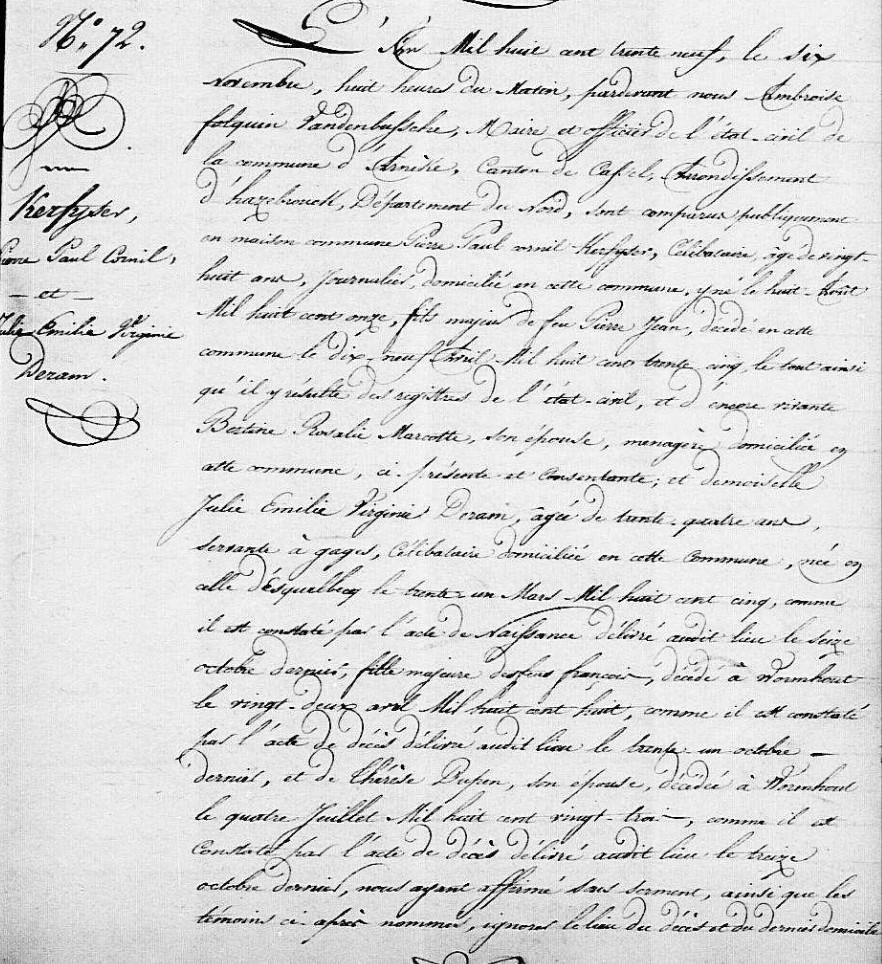 N.° 72.
Kerfyser,
Pierre Paul Cornil,
- et -
Julie Emilie Virginie
Deram.
L'An Mil huit cent trente neuf, le six
Novembre, huit heures du Matin, pardevant nous Ambroise
folquin Vandenbussche, Maire et officier de l'état-civil de
la commune d'Arnèke, Canton de Cassel, Arrondissement
d'hazebrouck, Département du Nord, sont comparus publiquement
en maison commune Pierre Paul cornil Kerfyser, Célibataire, âgé de vingt-
huit ans, Journalier, domicilié en cette commune, y né le huit Août
Mil huit cent onze, fils majeur de feu Pierre Jean, décédé en cette
commune le dix-neuf Avril Mil huit cent trente cinq, le tout ainsi
qu'il y résulte des registres de l'état-civil, et d'encore vivante
Bertine Rosalie Marcotte, son épouse, menagère domiciliée en
cette commune, ci-présente et Consentante; et demoiselle
Julie Emilie Virginie Deram, âgée de trente-quatre ans,
servante à gages, Célibataire domiciliée en cette Commune, née en
celle d'Esquelbecq le trente-un Mars Mil huit cent cinq, comme
il est constaté par l'acte de Naissance délivré audit lieu le seize
octobre dernier, fille majeure des feus françois, décédé à Wormhout
le vingt-deux avril Mil huit cent huit, comme il est constaté
par l'acte de décès délivré audit lieu le trente-un octobre -
dernier, et de Thérèse Dupon, son épouse, décédée à Wormhout
le quatre Juillet Mil huit cent vingt-trois, comme il est
Constaté par l'acte de décès délivré audit lieu le treize
octobre dernier, nous ayant affirmé sous serment, ainsi que les
témoins ci-après nommés, ignorer le lieu du décès et du dernier domicile